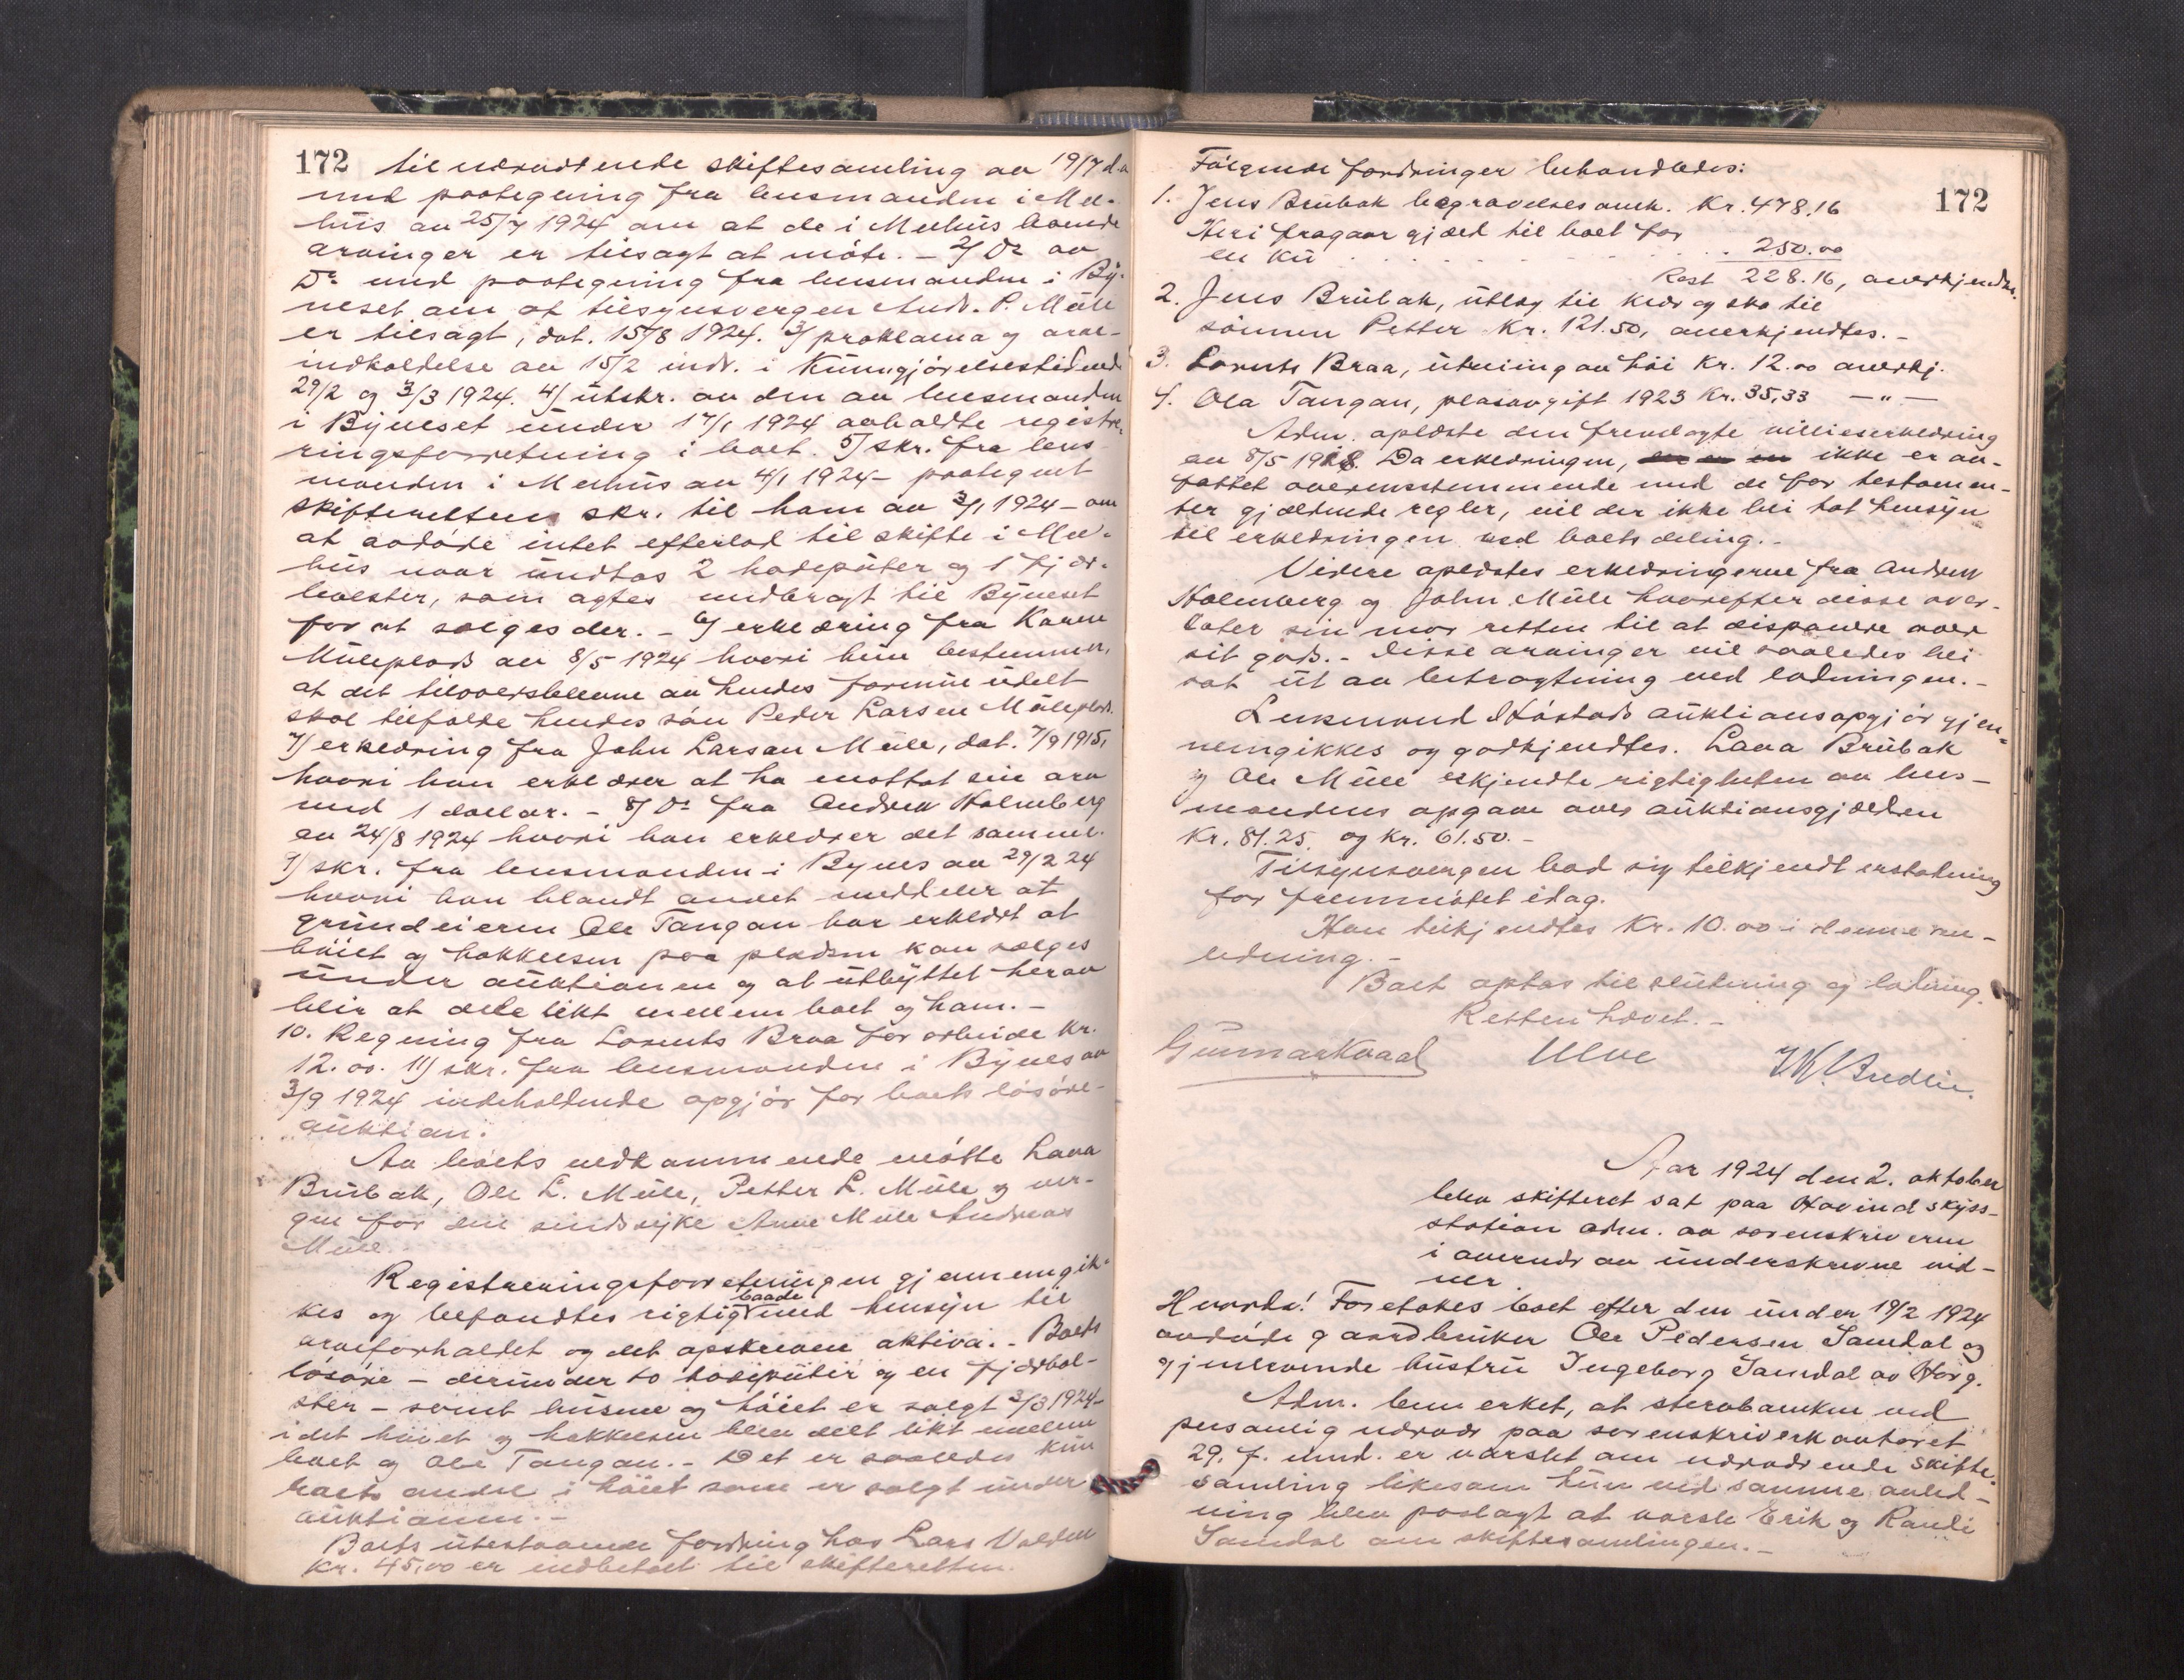 172 til nærværende skiftesamling av 19/7 d.a
med paategning fra lensmanden i Mel-
hus av 25/7 1924 om at de i Melhus boende
arvinger er tilsagt at møte. - 2/ Do av
Do med paategning fra lensmanden i By-
neset om at tilsynsvergen Andr. P. Mule
er tilsagt, dat. 15/8 1924. 3/ proklama og arve-
indkaldelse av 15/2 indr. i Kunngjørelsestidende
29/2 og 3/3 1924. 4/ utskr. av den av lensmanden
i Byneset under 17/1 1924 avholdte registre-
ringsforretning i boet. 5/ skr. fra lens-
manden i Melhus av 4/1 1924 - paategnet
skifterettens skr. til ham av 3/1 1924 - om
at avdøde intet efterlod til skifte i Mel-
hus naar undtas 2 hodeputer og 1 fjær-
bolster, som agtes medbragt til Byneset
for at sælges der. - 6/ erklæring fra Karen
Muleplads av 8/5 1924 hvori hun bestemmer,
at det tiloversblevne av hendes formue udelt
skal tilfalde hendes søn Peder Larsen Muleplads.
7/ erklæring fra John Larsen Mule, dat. 7/9 1915,
hvori han erklærer at ha mottat sin arv
med 1 dollar. - 8/ Do fra Andrew Holmberg
av 24/8 1924 hvori han erklærer det samme.
9/ skr. fra lensmanden i Bynes av 29/2 24
hvori han blandt andet meddeler at
grundeieren Ole Tangan har erklært at
høiet og hakkelsen paa pladsen kan sælges
under auktionen og at utbyttet herav
blir at dele likt mellem boet og ham. -
10. Regning fra Lorents Braa for arbeide kr.
12.00. 11) skr. fra lensmanden i Bynes av
3/9 1924 indeholdende opgjør for boets løsøre-
auktion.
Av boets vedkommende møtte Lava
Brubak, Ole L. Mule, Petter L. Mule og ver-
gen for den sindssyke Anne Mule Andreas
Mule.
Registreringsforretningen gjennemgik-
kes og befandtes rigtig baade med hensyn til
arveforholdet og det opskrevne aktiva. - Boets
løsøre - derunder to hodeputer og en fjærbol-
ster - samt husene og høiet er solgt 3/3 1924 -
idet høiet og hakkelsen blev delt likt mellem
boet og Ole Tangan. - Det er saaledes kun
boets andel i høiet som er solgt under
auktionen. -
Boets utestaaende fordring hos Lars Volden
kr. 45,00 er indbetalt til skifteretten.
172
Følgende fordringer behandledes:
1. Jens Brubak begravelsesomk. Kr. 478.16
Heri fragaar gjæld til boet for
en ku . . . . . . . . . . . 250.00
Rest 228.16, anerkjendtes.
2. Jens Brubak, utlæg til klær og sko til
sønnen Petter Kr. 121.50, anerkjendtes. -
3. Lorents Braa, utvining av høi Kr. 12.00 anerkj.
4. Ola Tangan, plasavgift 1923 Kr. 35,33 - " -
Adm. oplæste den fremlagte villieserklæring
av 8/5 1918. Da erklæringen, ikke er av-
fattet overensstemmende med de for testamen-
ter gjældende regler, vil der ikke bli tat hensyn
til erklæringen ved boets deling. -
Videre oplæstes erklæringerne fra Andrew
Holmberg og John Mule hvorefter disse over-
later sin mor retten til at disponere over
sit gods. - Disse arvinger vil saaledes bli
sat ut av betragtning ved lodningen. -
Lensmand Støstads auktionsopgjør gjen-
nemgikkes og godkjendtes. Lava Brubak
og Ole Mule erkjendte rigtigheten av lens-
mandens opgave over auktionsgjælden
Kr. 81.25 og Kr. 61.50. -
Tilsynsvergen bad sig tilkjendt erstatning
for fremmøtet idag.
Han tilkjendtes Kr. 10.00 i denne an-
ledning. -
Boet optas til slutning og lodning.
Retten hævet. -
Gunnar Kvaal Ulve W. Bredlie.
Aar 1924 den 2. oktober
blev skifteret sat paa Hovind skyss-
station adm. av sorenskriveren
i overvær av underskrevne vid-
ner.
Hvorda! Foretokes boet efter den under 19/2 1924
avdøde gaardbruker Ole Pedersen Samdal og
gjenlevende hustru Ingeborg Samdal av Horg.
Adm. bemerket, at sterboenken ved
personlig nærvær paa sorenskriverkontoret
29. f. mnd. er varslet om nærværende skifte-
samling likesom hun ved samme anled-
ning blev paalagt at varsle Erik og Randi
Samdal om skiftesamlingen. -